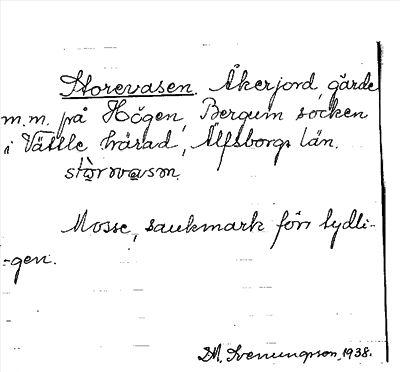 Storevasen. Åkerjord, gärde
m.m. på Högen, Bergum socken
i Vättle härad, Älfsborgs län.
Mosse, sankmark förr tydli-
-gen.
1938.